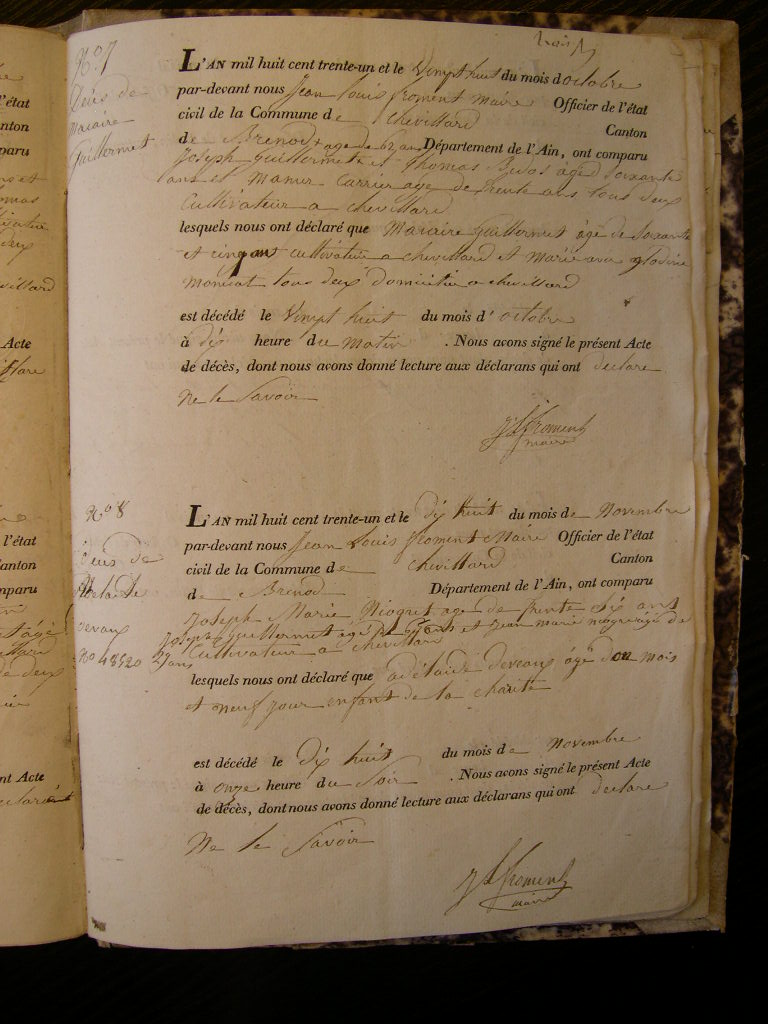 N.º 7
de
Maraire
Guillermet
L'AN mil huit cent trente-un et le Vingt huit du mois d octobre
par-devant nous Jean Louis froment maire Officier de l'état
civil de la Commune de Chevillard Canton
de Brenod Département de l'Ain, ont comparu
Joseph Guillermet et Thomas âgé soixante
ans et Carrier age de trente ans tous deux
Cultivateur a Chevillard
lesquels nous ont déclaré que Maraire Guillermet âgé de soxante
et cinq ant cultivateur a chevillard et marie avec
tous deux a chevillard
est décédé le Vingt huit du mois d' octobre
à dix heure du matin . Nous avons signé le présent Acte
de décès, dont nous avons donné lecture aux déclarans qui ont declare
ne le Savoir
J L froment
maire
Nº 8
de
Adelaide
devaux
Nº 48520
L'AN mil huit cent trente-un et le dix huit du mois de Novembre
par-devant nous Jean Louis froment Maire Officier de l'état
civil de la Commune de Chevillard Canton
de Brenod Département de l'Ain, ont comparu
Joseph Marie age de trente Six ant
Joseph Guillermet et jean marie de
27 ans Cultivateur a Chevillard
lesquels nous ont déclaré que adélaide devaux âgé d'ou mois
et neuf jour enfant de la charite
est décédé le dix huit du mois de Novembre
à onze heure du Soir . Nous avons signé le présent Acte
de décès, dont nous avons donné lecture aux déclarans qui ont declare
Ne le Savoir
J L froment
maire
l'état
Canton
paru
Acte
l'état
Canton
paru
nt Acte